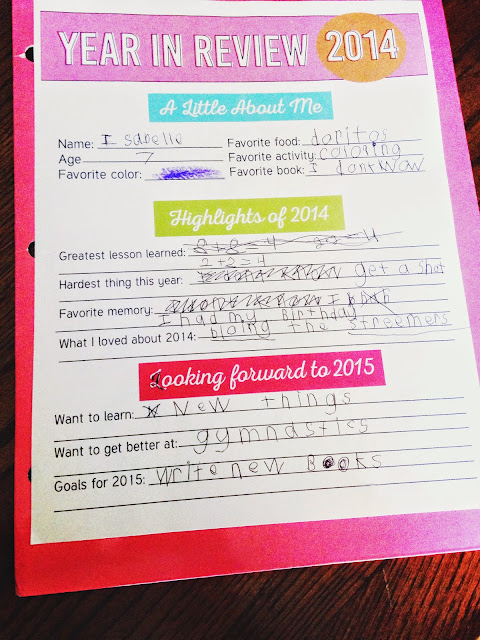 YEAR IN REVIEW 2014
A Little About Me
Name: Isabelle Favorite food: doritos
Age 7 Favorite activity: coloring
Favorite color: Favorite book: I dontknow
Highlights of 2014
Greatest lesson learned: 2+2=4
2+2=4
Hardest thing this year: get a shot
Favorite memory: I
I had my Birthday
What I loved about 2014: bloing the streemers
Looking forward to 2015
Want to learn: New things
Want to get better at: gymnastics
Goals for 2015: Write new Books